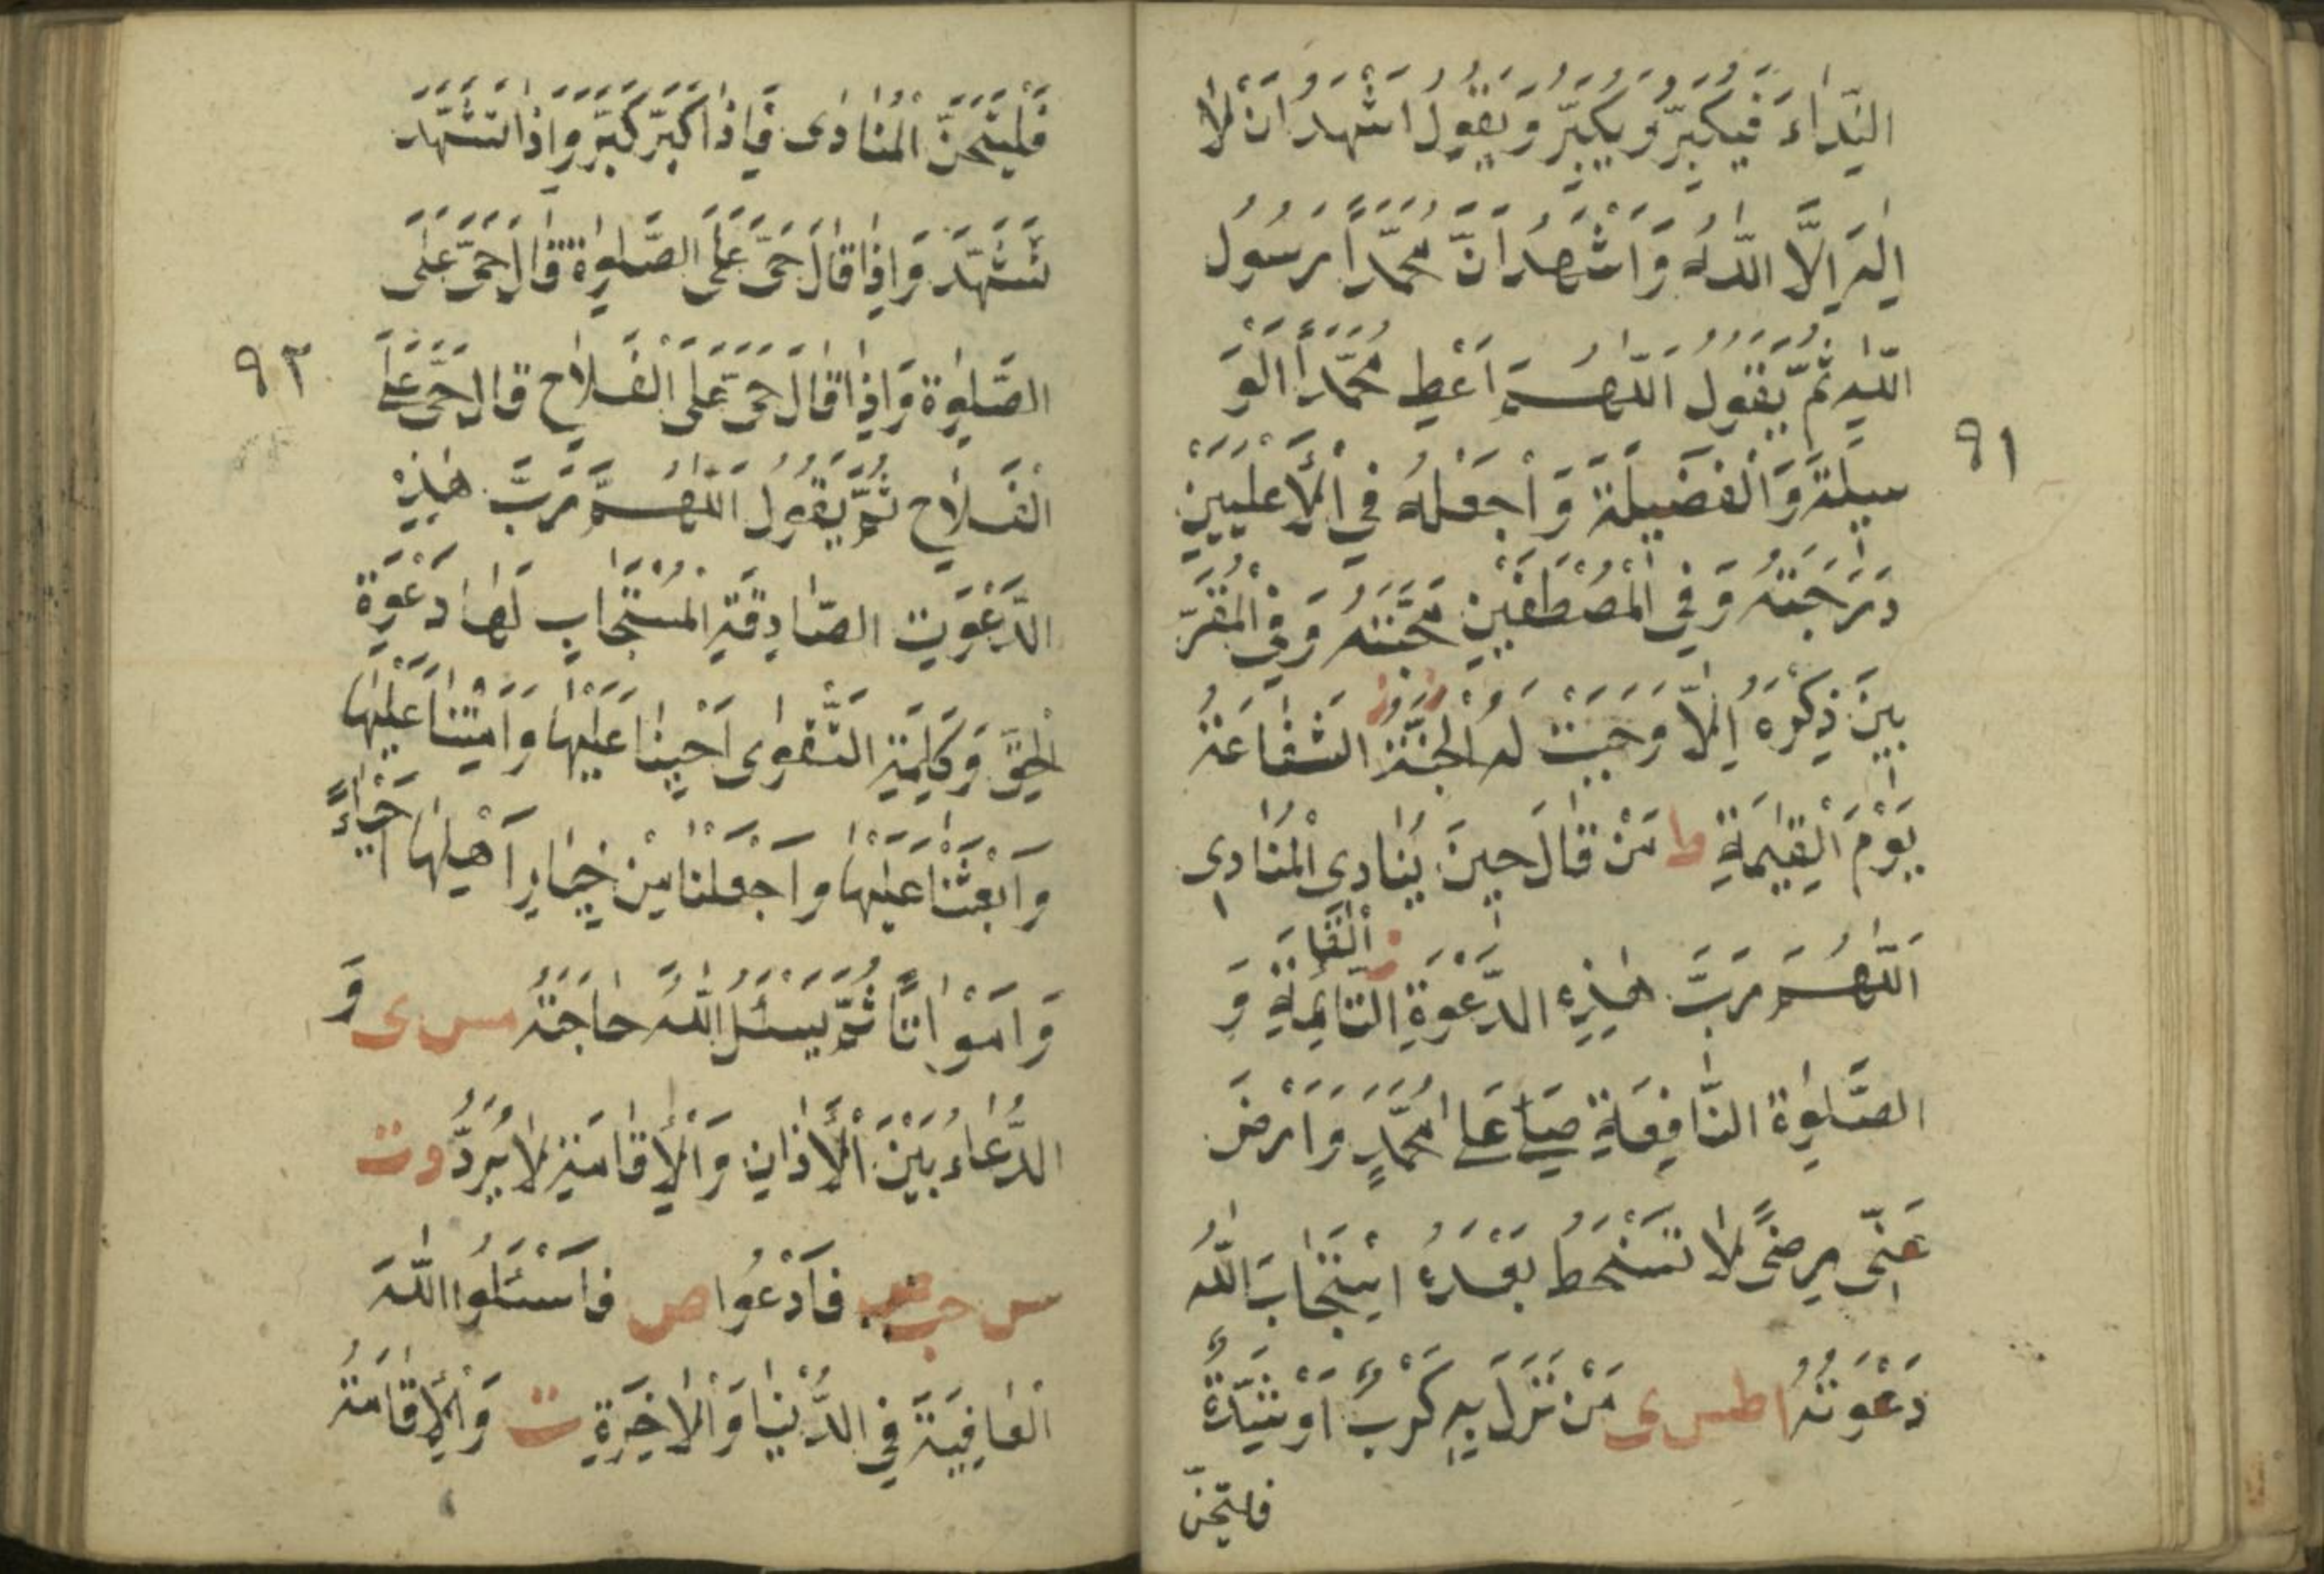 النِّدَاءَ فَيُكَبِّرُ وَيُكَبِّرُ وَيَقُولُ اَشْهَدُ اَنْ لَا
اِلٰهَ اِلَّا اللّٰهُ وَاَشْهَدُ اَنَّ مُحَمَّدًا رَسُولُ
اللّٰهِ ثُمَّ يَقُولُ اَللّٰهُمَّ اَعْطِ مُحَمَّدًا الْوَ
٩١
سِيلَةَ وَالْفَضِيلَةَ وَاجْعَلْهُ فِي الْاَعْلَيَيْنَ
دَرَجَتُهُ وَفِي الْمُصْطَفَيْنَ مَحَبَّتُهُ وَفِي الْمُقَرَّ
بِينَ ذِكْرُهُ اِلَّا وَجَبَتْ لَهُ الْجَنَّةُ الشَّفَاعَةُ
يَوْمَ الْقِيٰمَةِ ط مَنْ قَالَ حِينَ يُنَادِى الْمُنَادِى
اَللّٰهُمَّ رَبَّ هٰذِهِ الدَّعْوَةِ التَّامَّةِ وَ
الْقَائِمَةِ
الصَّلٰوةِ النَّافِعَةِ صَلِّ عَلٰى مُحَمَّدٍ وَارْضَ
عَنِّى رِضًى لَا تَسْخَطُ بَعْدَهُ اِسْتَجَابَ اللّٰهُ
دَعْوَتَهُ ا طس ى مَنْ نَزَلَ بِهِ كَرْبٌ اَوْ شِدَّةٌ
فليتحيّن
فَلْيَتَحَيَّنَّ الْمُنَادِى فَاِذَا كَبَّرَ كَبَّرَ وَاِذَا تَشَهَّدَ
تَشَهَّدَ وَاِذَا قَالَ حَىَّ عَلَى الصَّلٰوةِ قَالَ حَىَّ عَلَى
٩٢
الصَّلٰوةِ وَاِذَا قَالَ حَىَّ عَلَى الْفَلَاحِ قَالَ حَىَّ عَلَى
الْفَلَاحِ ثُمَّ يَقُولُ اَللّٰهُمَّ رَبَّ هٰذِهِ
الدَّعْوَتِ الصَّادِقَةِ الْمُسْتَجَابِ لَهَا دَعْوَةِ
الْحَقِّ وَكَلِمَةِ التَّقْوٰى اَحْيِنَا عَلَيْهَا وَاَمِتْنَا عَلَيْهَا
وَابْعَثْنَا عَلَيْهَا وَاجْعَلْنَا مِنْ خِيَارِ اَهْلِهَا اَحْيَاءً
وَاَمْوَاتًا ثُمَّ يَسْئَلُ اللّٰهَ حَاجَتَهُ مس ى وَ
الدُّعَاءُ بَيْنَ الْاَذَانِ وَالْاِقَامَةِ لَا يُرَدُّ د ت
س حب فَادْعُوا ص فَاسْئَلُوا اللّٰهَ
الْعَافِيَةَ فِي الدُّنْيَا وَالْاٰخِرَةِ ت وَالْاِقَامَةُ